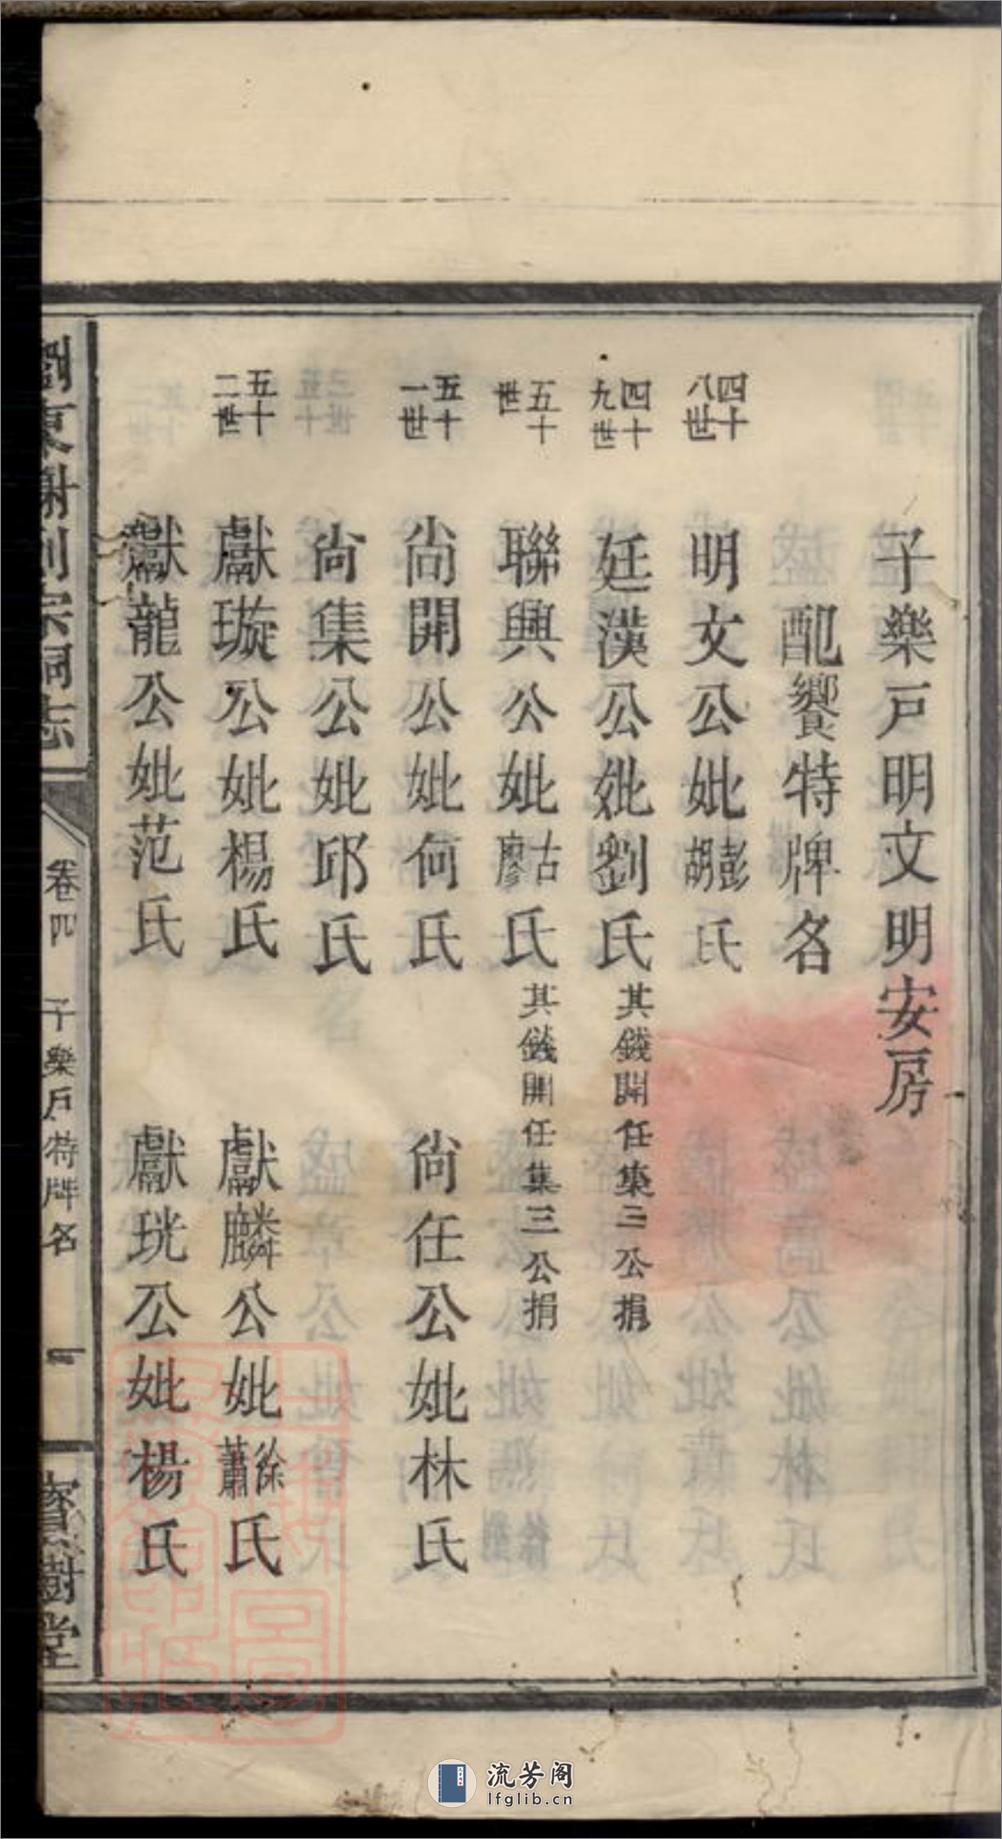 子樂戶明文明安房
配饗特牌名
四十八世
明文公妣彭胡氏
四十九世
廷漢公妣劉氏 其錢開任集三公捐
五十世
聯興公妣古廖氏 其錢開任集三公捐
五十一世
尚開公妣何氏 尚任公妣林氏
尚集公妣邱氏
五十二世
獻璇公妣楊氏 獻麟公妣徐蕭氏
獻龍公妣范氏 獻珖公妣楊氏
瀏東謝列宗祠志
卷四
子樂戶特牌名
一
寶樹堂
流芳阁
lfglib.cn